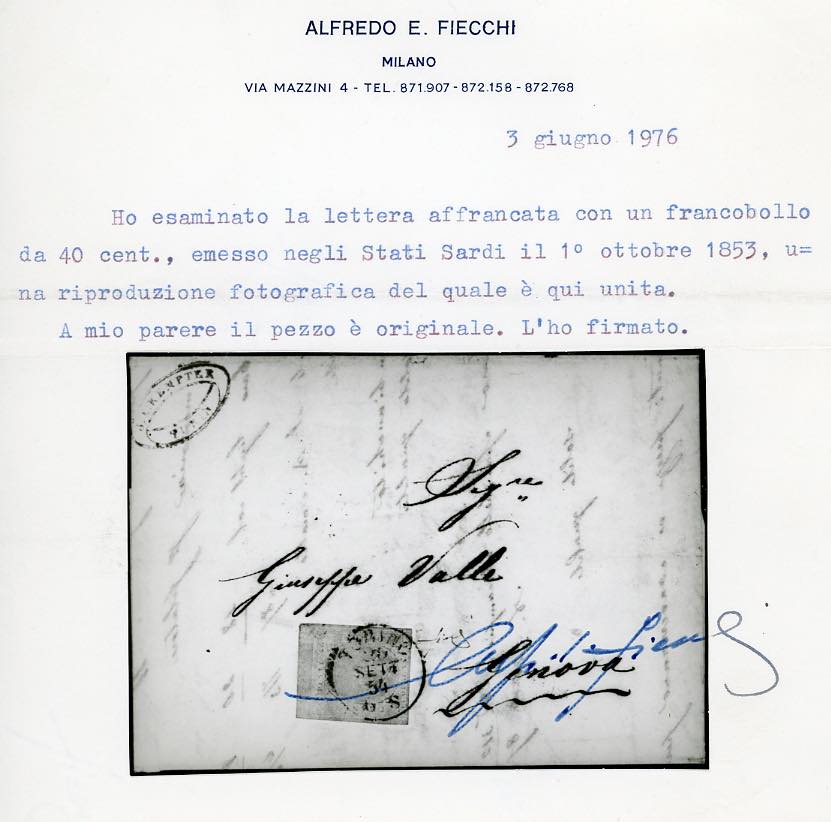 ALFREDO E. FIECCHI
MILANO
VIA MAZZINI 4 - TEL. 871.907 - 872.158 - 872.768
3 giugno 1976
Ho esaminato la lettera affrancata con un francobollo
da 40 cent., emesso negli Stati Sardi il 1° ottobre 1853, u=
na riproduzione fotografica del quale è qui unita.
A mio parere il pezzo è originale. L'ho firmato.
Sigre
Giuseppe Valle
Genova
TORINO
SETT
54